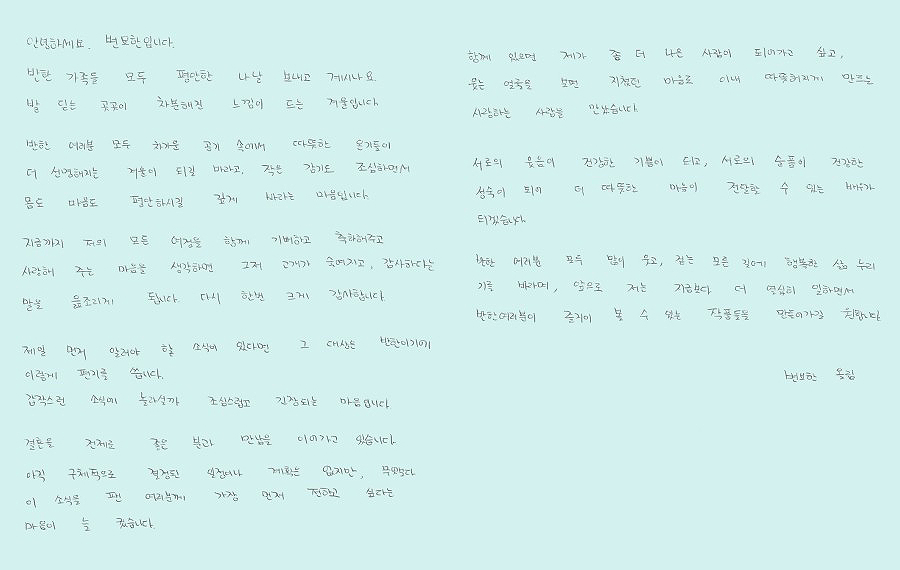 안녕하세요. 변요한입니다.
반한 가족들 모두 평안한 나날 보내고 계시나요.
발 딛는 곳곳이 차분해진 느낌이 드는 겨울입니다.
반한 여러분 모두 차가운 공기 속에서 따뜻한 온기들이
더 선명해지는 겨울이 되길 바라고, 작은 감기도 조심하면서
몸도 마음도 평안하시길 깊게 바라는 마음입니다.
지금까지 저의 모든 여정을 함께 기뻐하고 축하해주고
사랑해 주는 마음을 생각하면 그저 고개가 숙여지고, 감사하다는
말을 읊조리게 됩니다. 다시 한번 크게 감사합니다.
제일 먼저 알려야 할 소식이 있다면 그 대상은 반한이기에
이렇게 편지를 씁니다.
갑작스런 소식에 놀라실까 조심스럽고 긴장되는 마음입니다.
결혼을 전제로 좋은 분과 만남을 이어가고 있습니다.
아직 구체적으로 결정된 일정이나 계획은 없지만, 무엇보다
이 소식을 팬 여러분께 가장 먼저 전하고 싶다는
마음이 늘 컸습니다.
함께 있으면 제가 좀 더 나은 사람이 되어가고 싶고,
웃는 얼굴을 보면 지쳤던 마음도 이내 따뜻해지게 만드는
사랑하는 사람을 만났습니다.
서로의 웃음이 건강한 기쁨이 되고, 서로의 슬픔이 건강한
성숙이 되어 더 따뜻한 마음이 전달할 수 있는 배우가
되겠습니다.
반한 여러분 모두 많이 웃고, 걷는 모든 길에 행복한 삶 누리
기를 바라며, 앞으로 저는 지금보다 더 열심히 일하면서
반한여러분이 즐거이 볼 수 있는 작품들을 만들어가길 원합니다.
변요한 올림